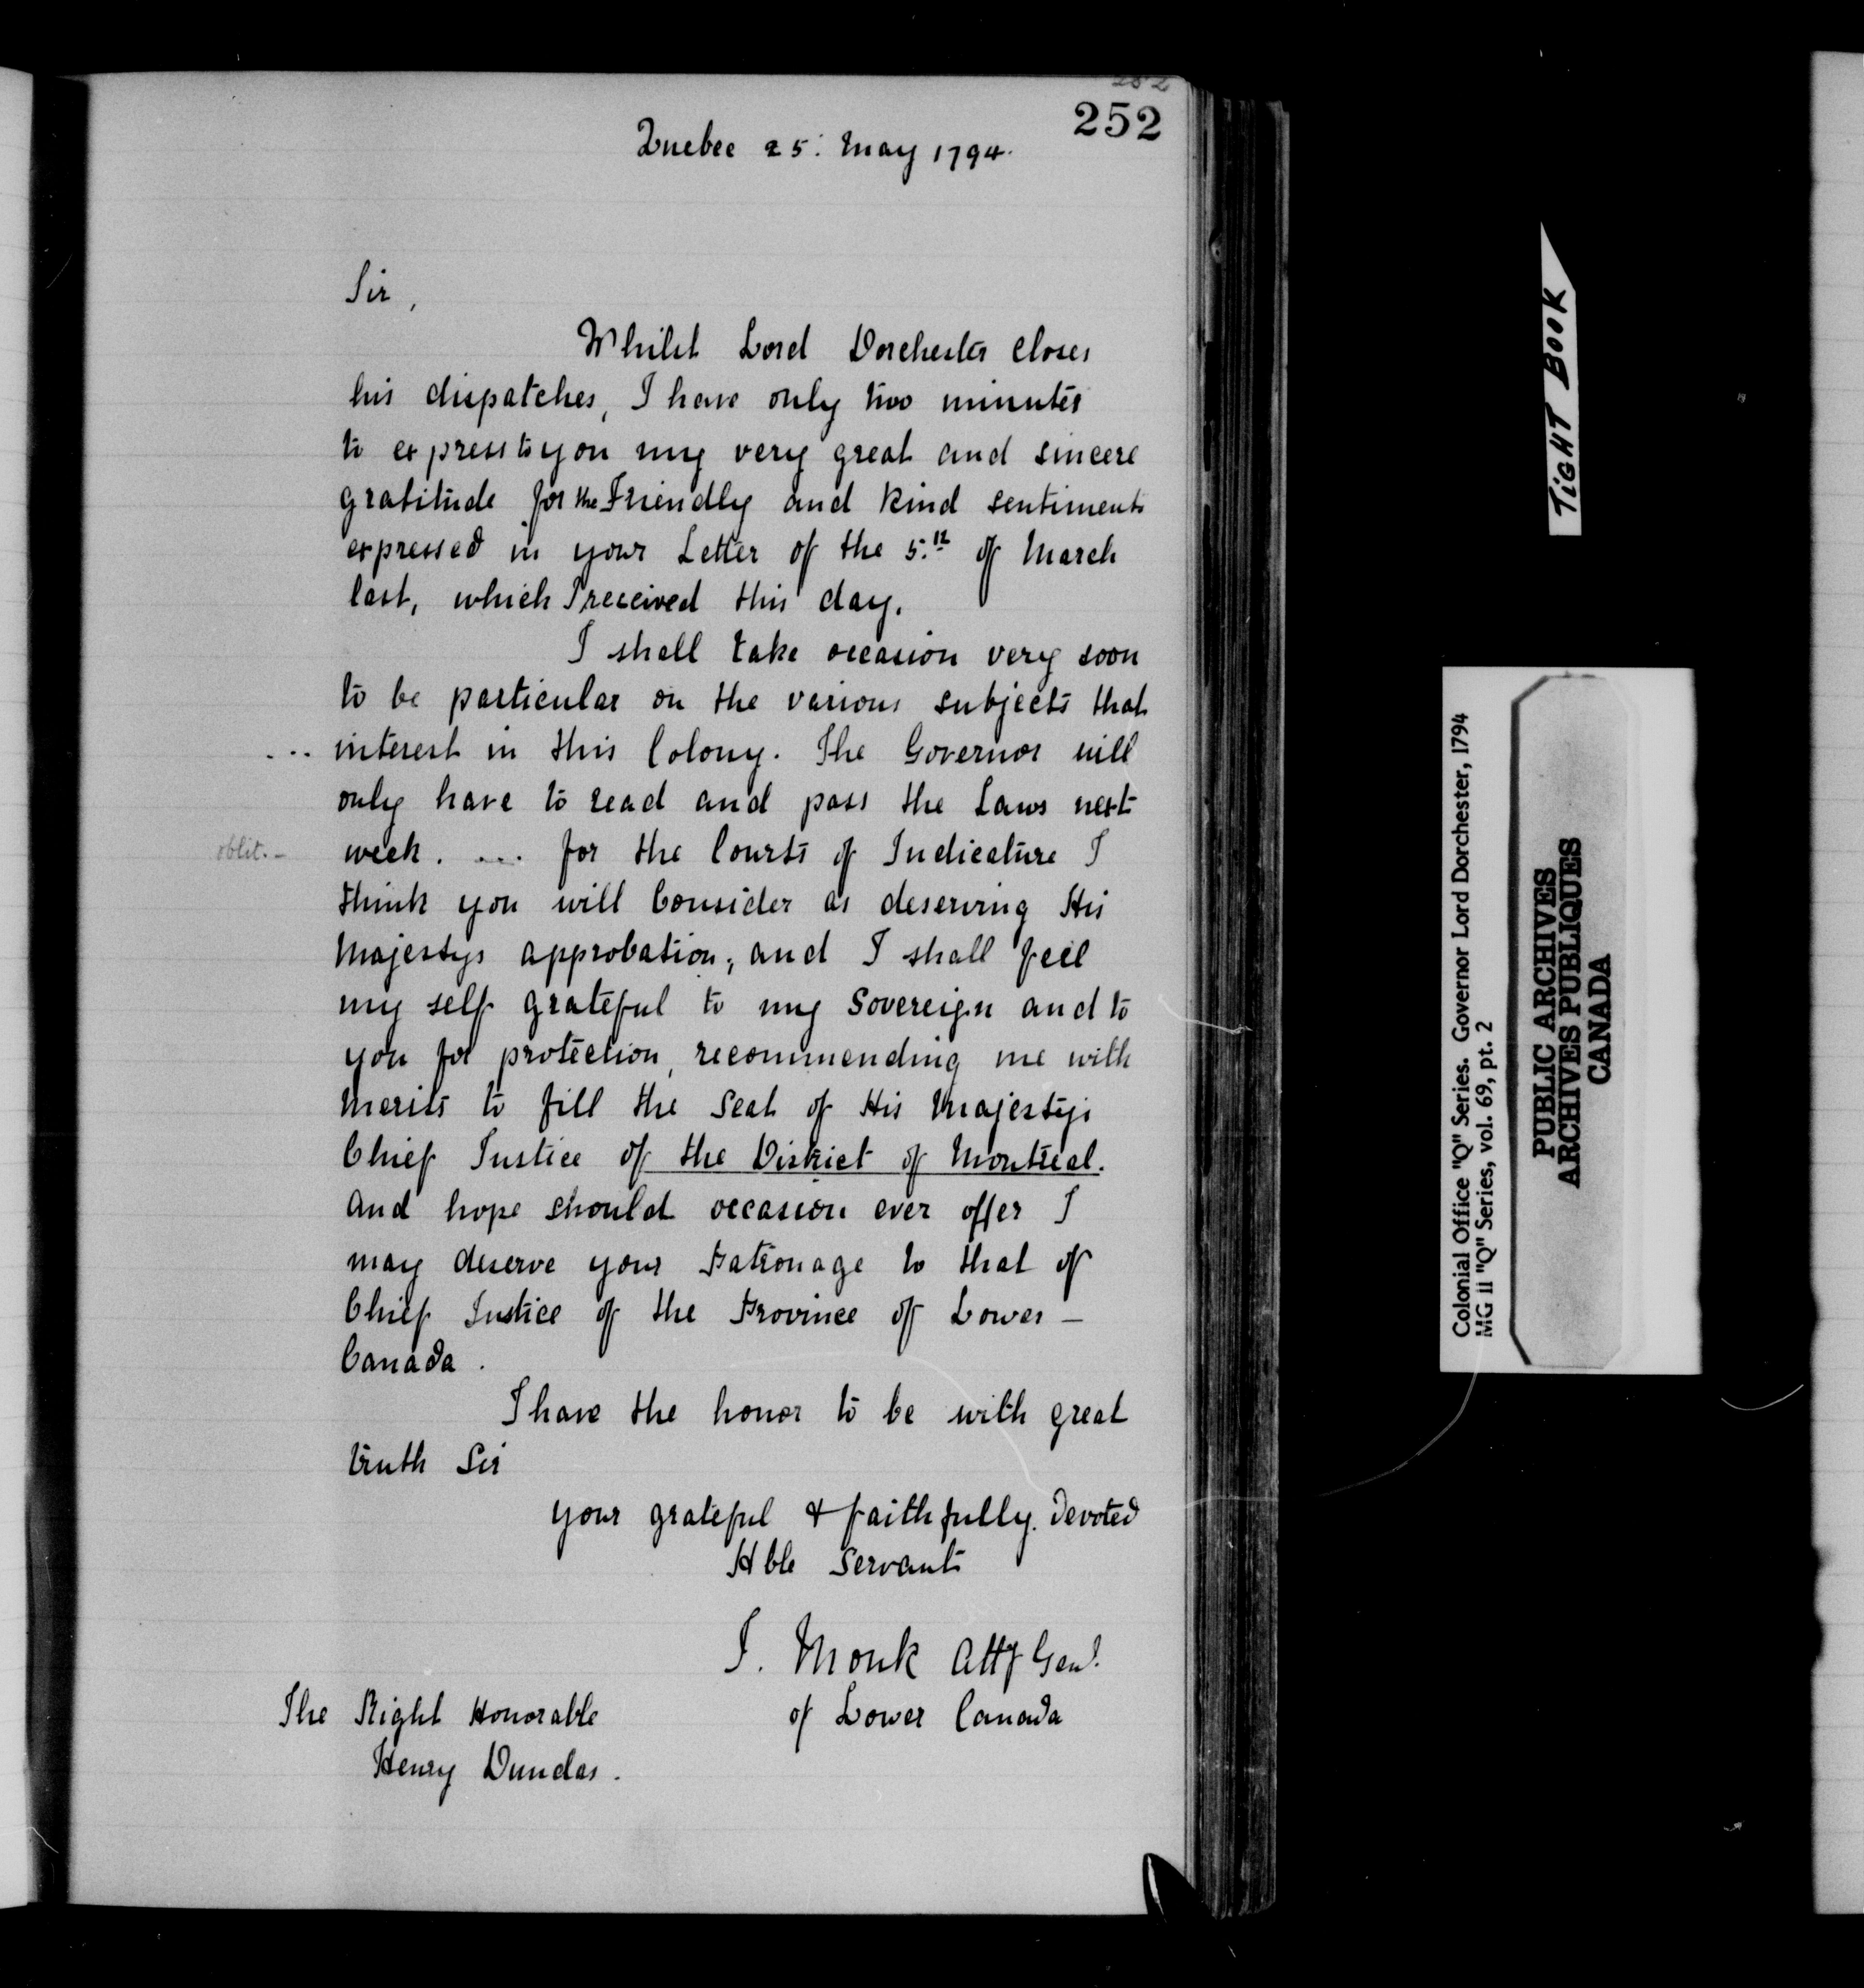 252
252
Quebec 25: May 1794.
Sir,
Whilst Lord Dorchester closes
his dispatches, I have only two minutes
to express to you my very great and sincere
gratitude for the Friendly and kind sentiments
expressed in your Letter of the 5.th of March
last, which I received this day.
I shall take occasion very soon
to be particular on the various subjects that
... interest in this Colony. The Governor will
only have to read and pass the Laws next
oblit. - week. .... for the Courts of Judicature I
think you will Consider as deserving His
Majestys approbation; and I shall feel
my self grateful to my Sovereign and to
you for protection, recommending me with
merits to fill the Seat of His Majestys
Chief Justice of the District of Montreal.
And hope should occasion ever offer I
may deserve your Patronage to that of
Chief Justice of the Province of Lower -
Canada.
I have the honor to be with great
truth Sir
your grateful & faithfully. Devoted
Hble Servant
J. Monk Atty Genl.
of Lower Canada
The Right Honorable
Henry Dundas.
TIGHT BOOK
Colonial Office "Q" Series. Governor Lord Dorchester, 1794
MG 11 "Q" Series, vol. 69, pt. 2
PUBLIC ARCHIVES
ARCHIVES PUBLIQUES
CANADA